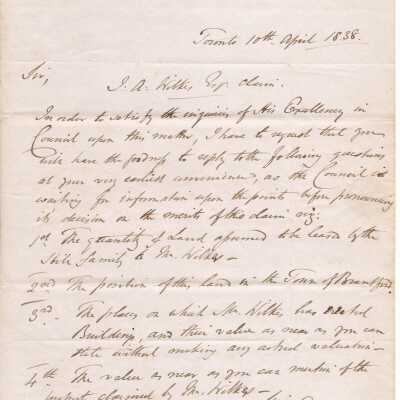 Toronto 10th April 1838.
Sir,
J. A. Wilkes Esq claim.
In order to satisfy the inquiries of His Excellency in
Council upon this matter, I have to request that you
will have the goodness to reply to the following questions
at your very earliest convenience, as the Council is
waiting for information upon the points before pronouncing
its decision on the merits of the claim viz:
1st The quantity of Land assumed to be leased by the
Hill family to Mr. Wilkes –
2nd The position of this land in the Town of Brantford.
3rd The places on which Mr. Wilkes has
Buildings, and their value as near as you can
state without making any actual valuation –
4th The value as near as you can mention of the
claimed by Mr. Wilkes –